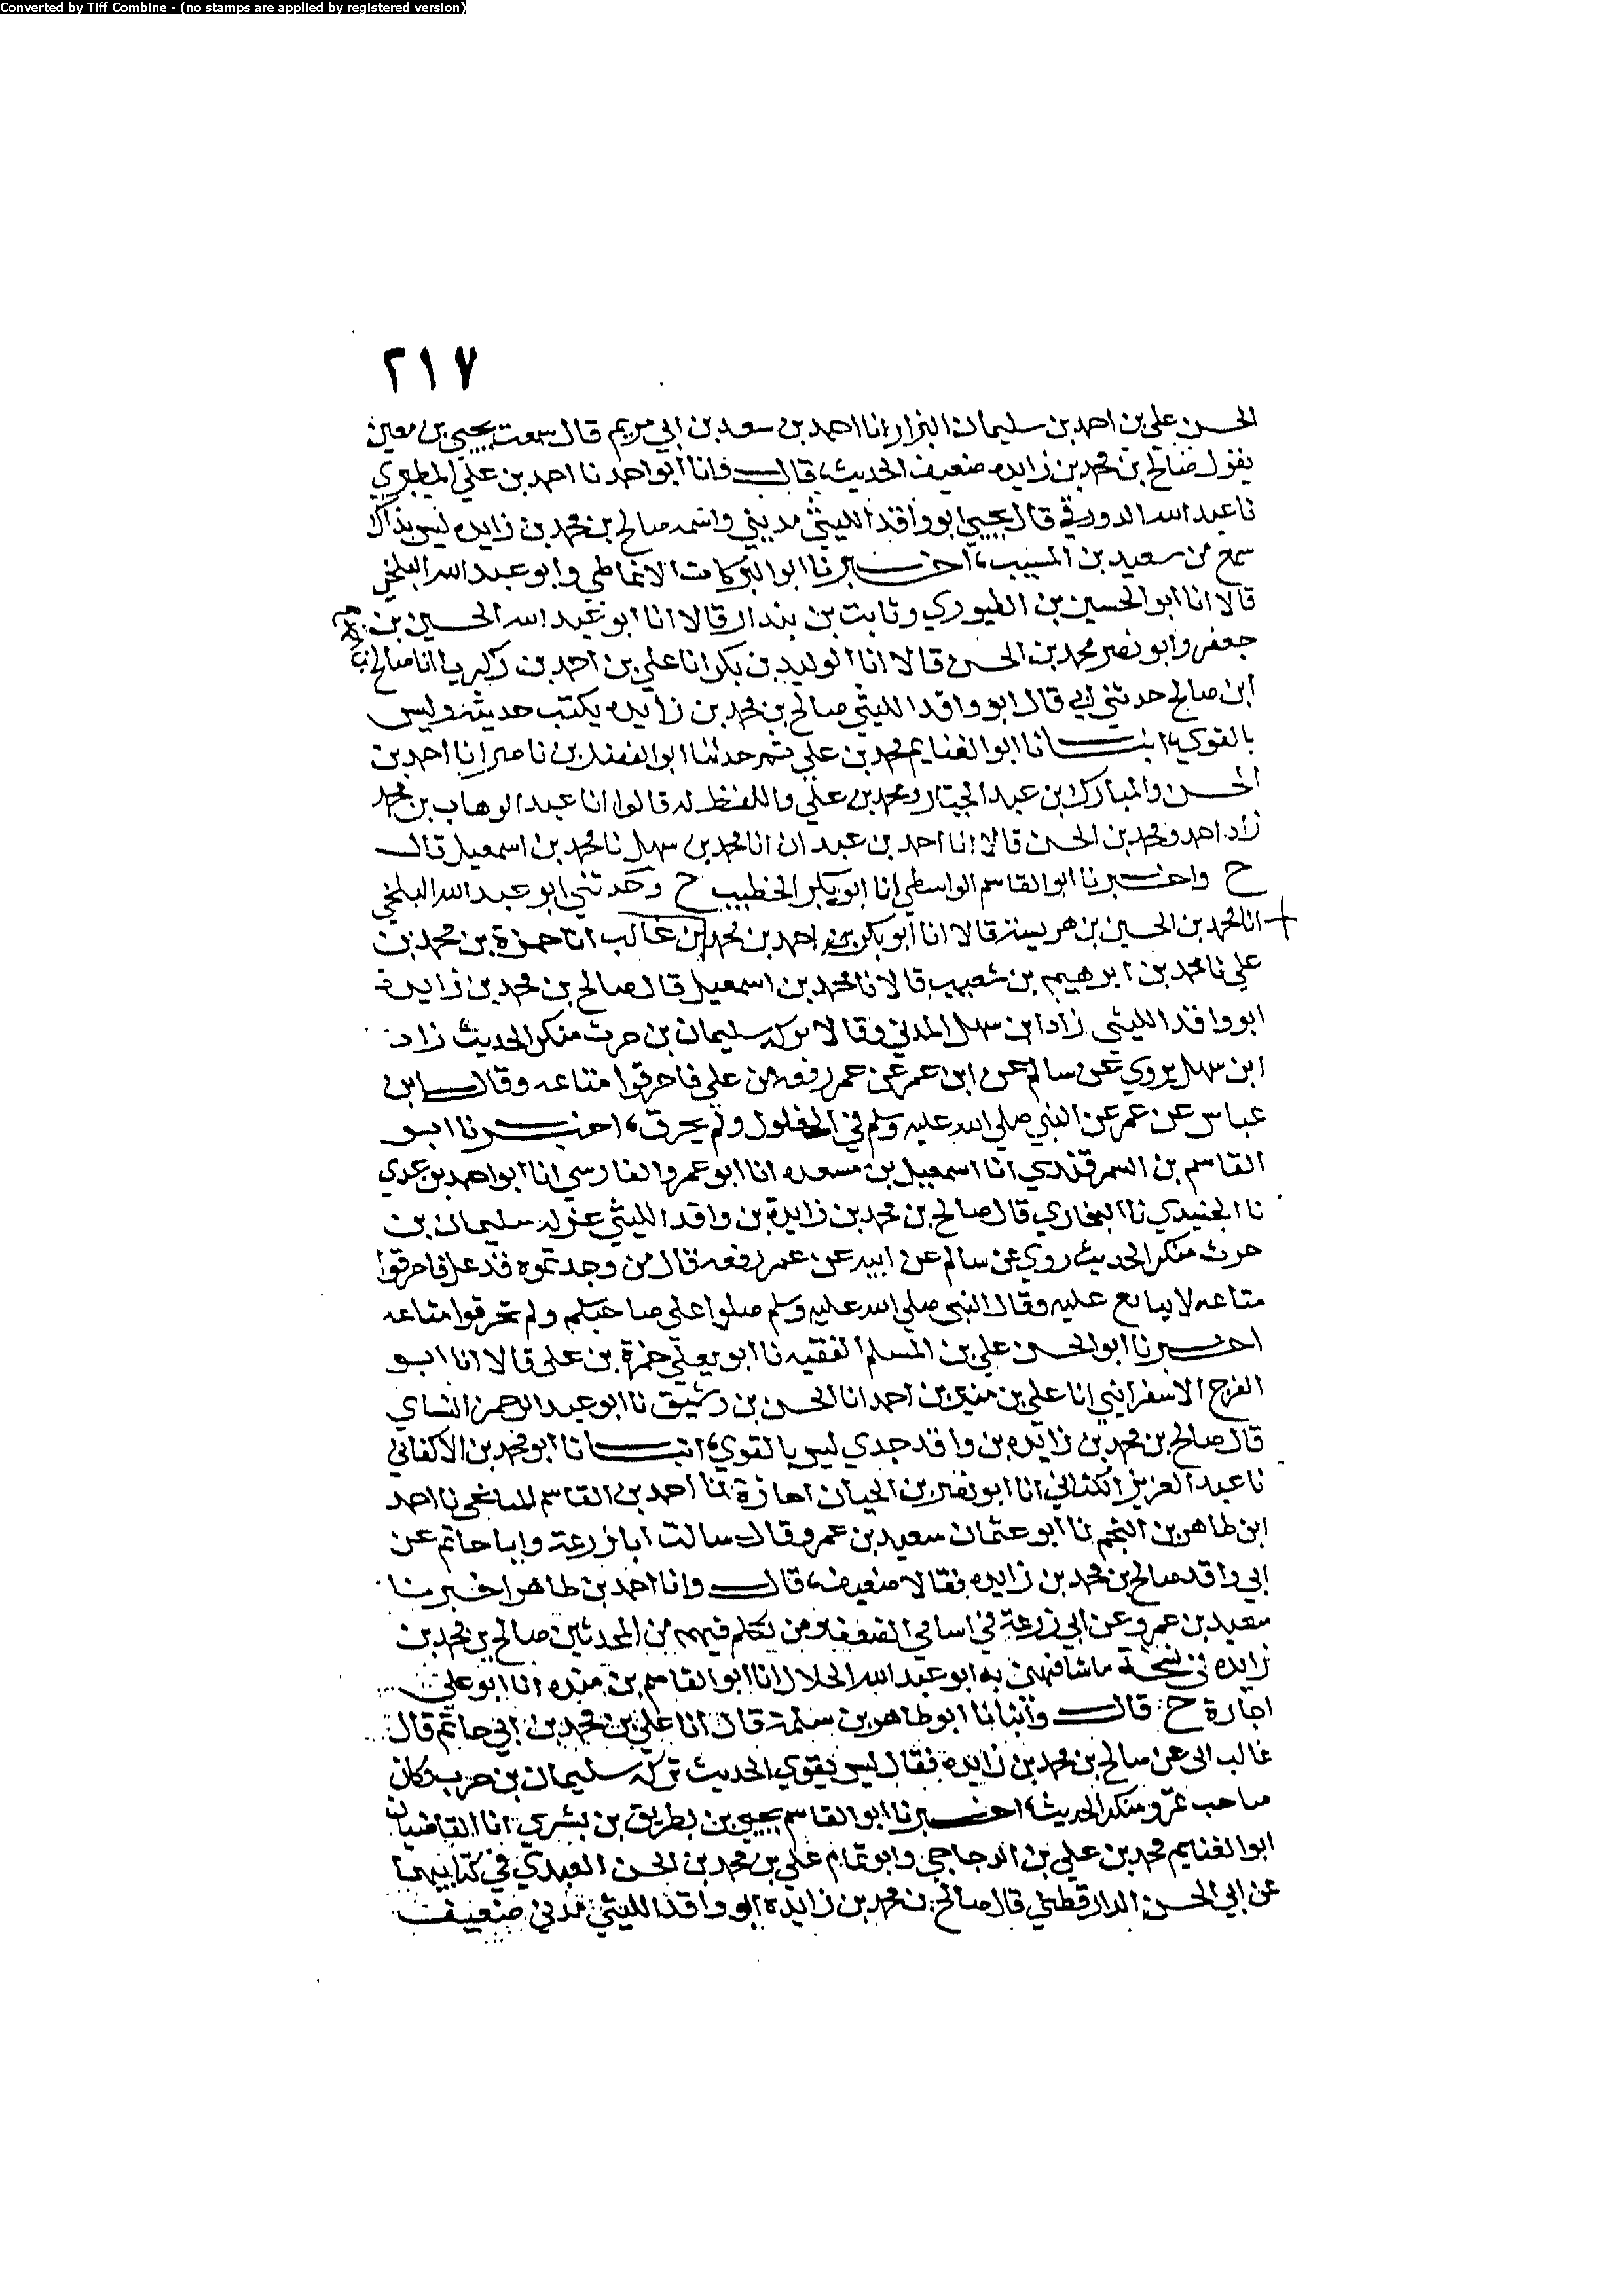 Converted by Tiff Combine - (no stamps are applied by registered version)
٢١٧
الحسن علي بن احمد بن سليمان البزار انا احمد بن سعد بن ابي مريم قال سمعت يحيي بن معين
يقول صالح بن محمد بن زايده ضعيف الحديث، قال وانا ابو احمد نا احمد بن علي المطيري
نا عبد الله الدورقي قال يحيي ابو واقد الليثي مديني واسمه صالح بن محمد بن زايده ليس بذاك
سمع من سعيد بن المسيب، اخبرنا ابو البركات الانماطي وابو عبد الله البلخي
قالا انا ابو الحسين بن الطيوري وثابت بن بندار قالا انا ابو عبد الله الحسين بن
جعفر وابو نصر محمد بن الحسن قالا انا الوليد بن بكر انا علي بن احمد بن زكريا انا صالح بن
ابن صالح حدثني ابي قال ابو واقد الليثي صالح بن محمد بن زايده يكتب حديثه وليس
بالقوي، انبانا ابو الغنايم محمد بن علي ثم حدثنا ابو الفضل بن ناصر انا احمد بن
الحسن والمبارك بن عبد الجبار ومحمد بن علي واللفظ له قالوا انا عبد الوهاب بن محمد
زاد احمد ومحمد بن الحسن قالا انا احمد بن عبدان انا محمد بن سهل نا محمد بن اسمعيل قال
ح واخبرنا ابو القاسم الواسطي انا ابو بكر الخطيب ح وحدثني ابو عبد الله البلخي
انا محمد بن الحسين بن هريسة قالا انا ابو بكر احمد بن محمد بن غالب انا حمزة بن محمد بن
علي نا محمد بن ابرهيم بن شعيب قالا نا محمد بن اسمعيل قال صالح بن محمد بن زايدة
ابو واقد الليثي زاد ابن سهل المدني وقالا تركه سليمان بن حرث منكر الحديث زاد
ابن سهل يروي عن سالم عن ابن عمر عن عمر رفعه من علي فاحرقوا متاعه وقال ابن
عباس عن عمر عن النبي صلي الله عليه وسلم في الغلول ولم يحرق، اخبرنا ابو
القاسم بن السمرقندي انا اسمعيل بن مسعده انا ابو عمرو الفارسي انا ابو احمد بن عدي
نا الجنيدي نا البخاري قال صالح بن محمد بن زايدة بن واقد الليثي عزله سليمان بن
حرث منكر الحديث روي عن سالم عن ابيه عن عمر رفعه قال من وجدتموه قد غل فاحرقوا
متاعه لا يبايع عليه وقال النبي صلي الله عليه وسلم صلوا علي صاحبكم ولم تحرقوا متاعه
اخبرنا ابو الحسن علي بن المسلم الفقيه نا ابو يعلي حمزة بن علي قالا انا ابو
الفرج الاسفرايني انا علي بن منير بن احمد انا الحسن بن رشيق نا ابو عبد الرحمن النساي
قال صالح بن محمد بن زايده بن واقد جدي ليس بالقوي، انبانا ابو محمد بن الاكفاني
نا عبد العزيز الكتاني انا ابو نصر بن الجبان اجازة انا احمد بن القاسم الميانجي نا احمد
ابن طاهر بن النجم نا ابو عثمان سعيد بن عمرو قال سالت ابا زرعة وابا حاتم عن
ابي واقد صالح بن محمد بن زايده فقالا ضعيف، قال وانا احمد بن طاهر اخبرنا
سعيد بن عمرو عن ابي زرعة في اسامي الضعفا ومن تكلم فيهم من المحدثين صالح بن محمد بن
زايده في نسخة ما شافهني به ابو عبد الله الخلال انا ابو القاسم بن منده انا ابو علي
اجازة ح قال وانبانا ابو طاهر بن سلمة قال انا علي بن محمد بن ابي حاتم قال
ابي عن صالح بن محمد بن زايده فقال ليس بقوي الحديث تركه سليمان بن حرب وكان
صاحب غزو منكر الحديث، اخبرنا ابو القاسم يحيي بن بطريق بن بشري انا القاضيان
ابو الغنايم محمد بن علي بن الدجاجي وابو تمام علي بن محمد بن الحسن العبدي في كتابيهما
عن ابي الحسن الدارقطني قال صالح بن محمد بن زايده ابو واقد الليثي مدني ضعيف